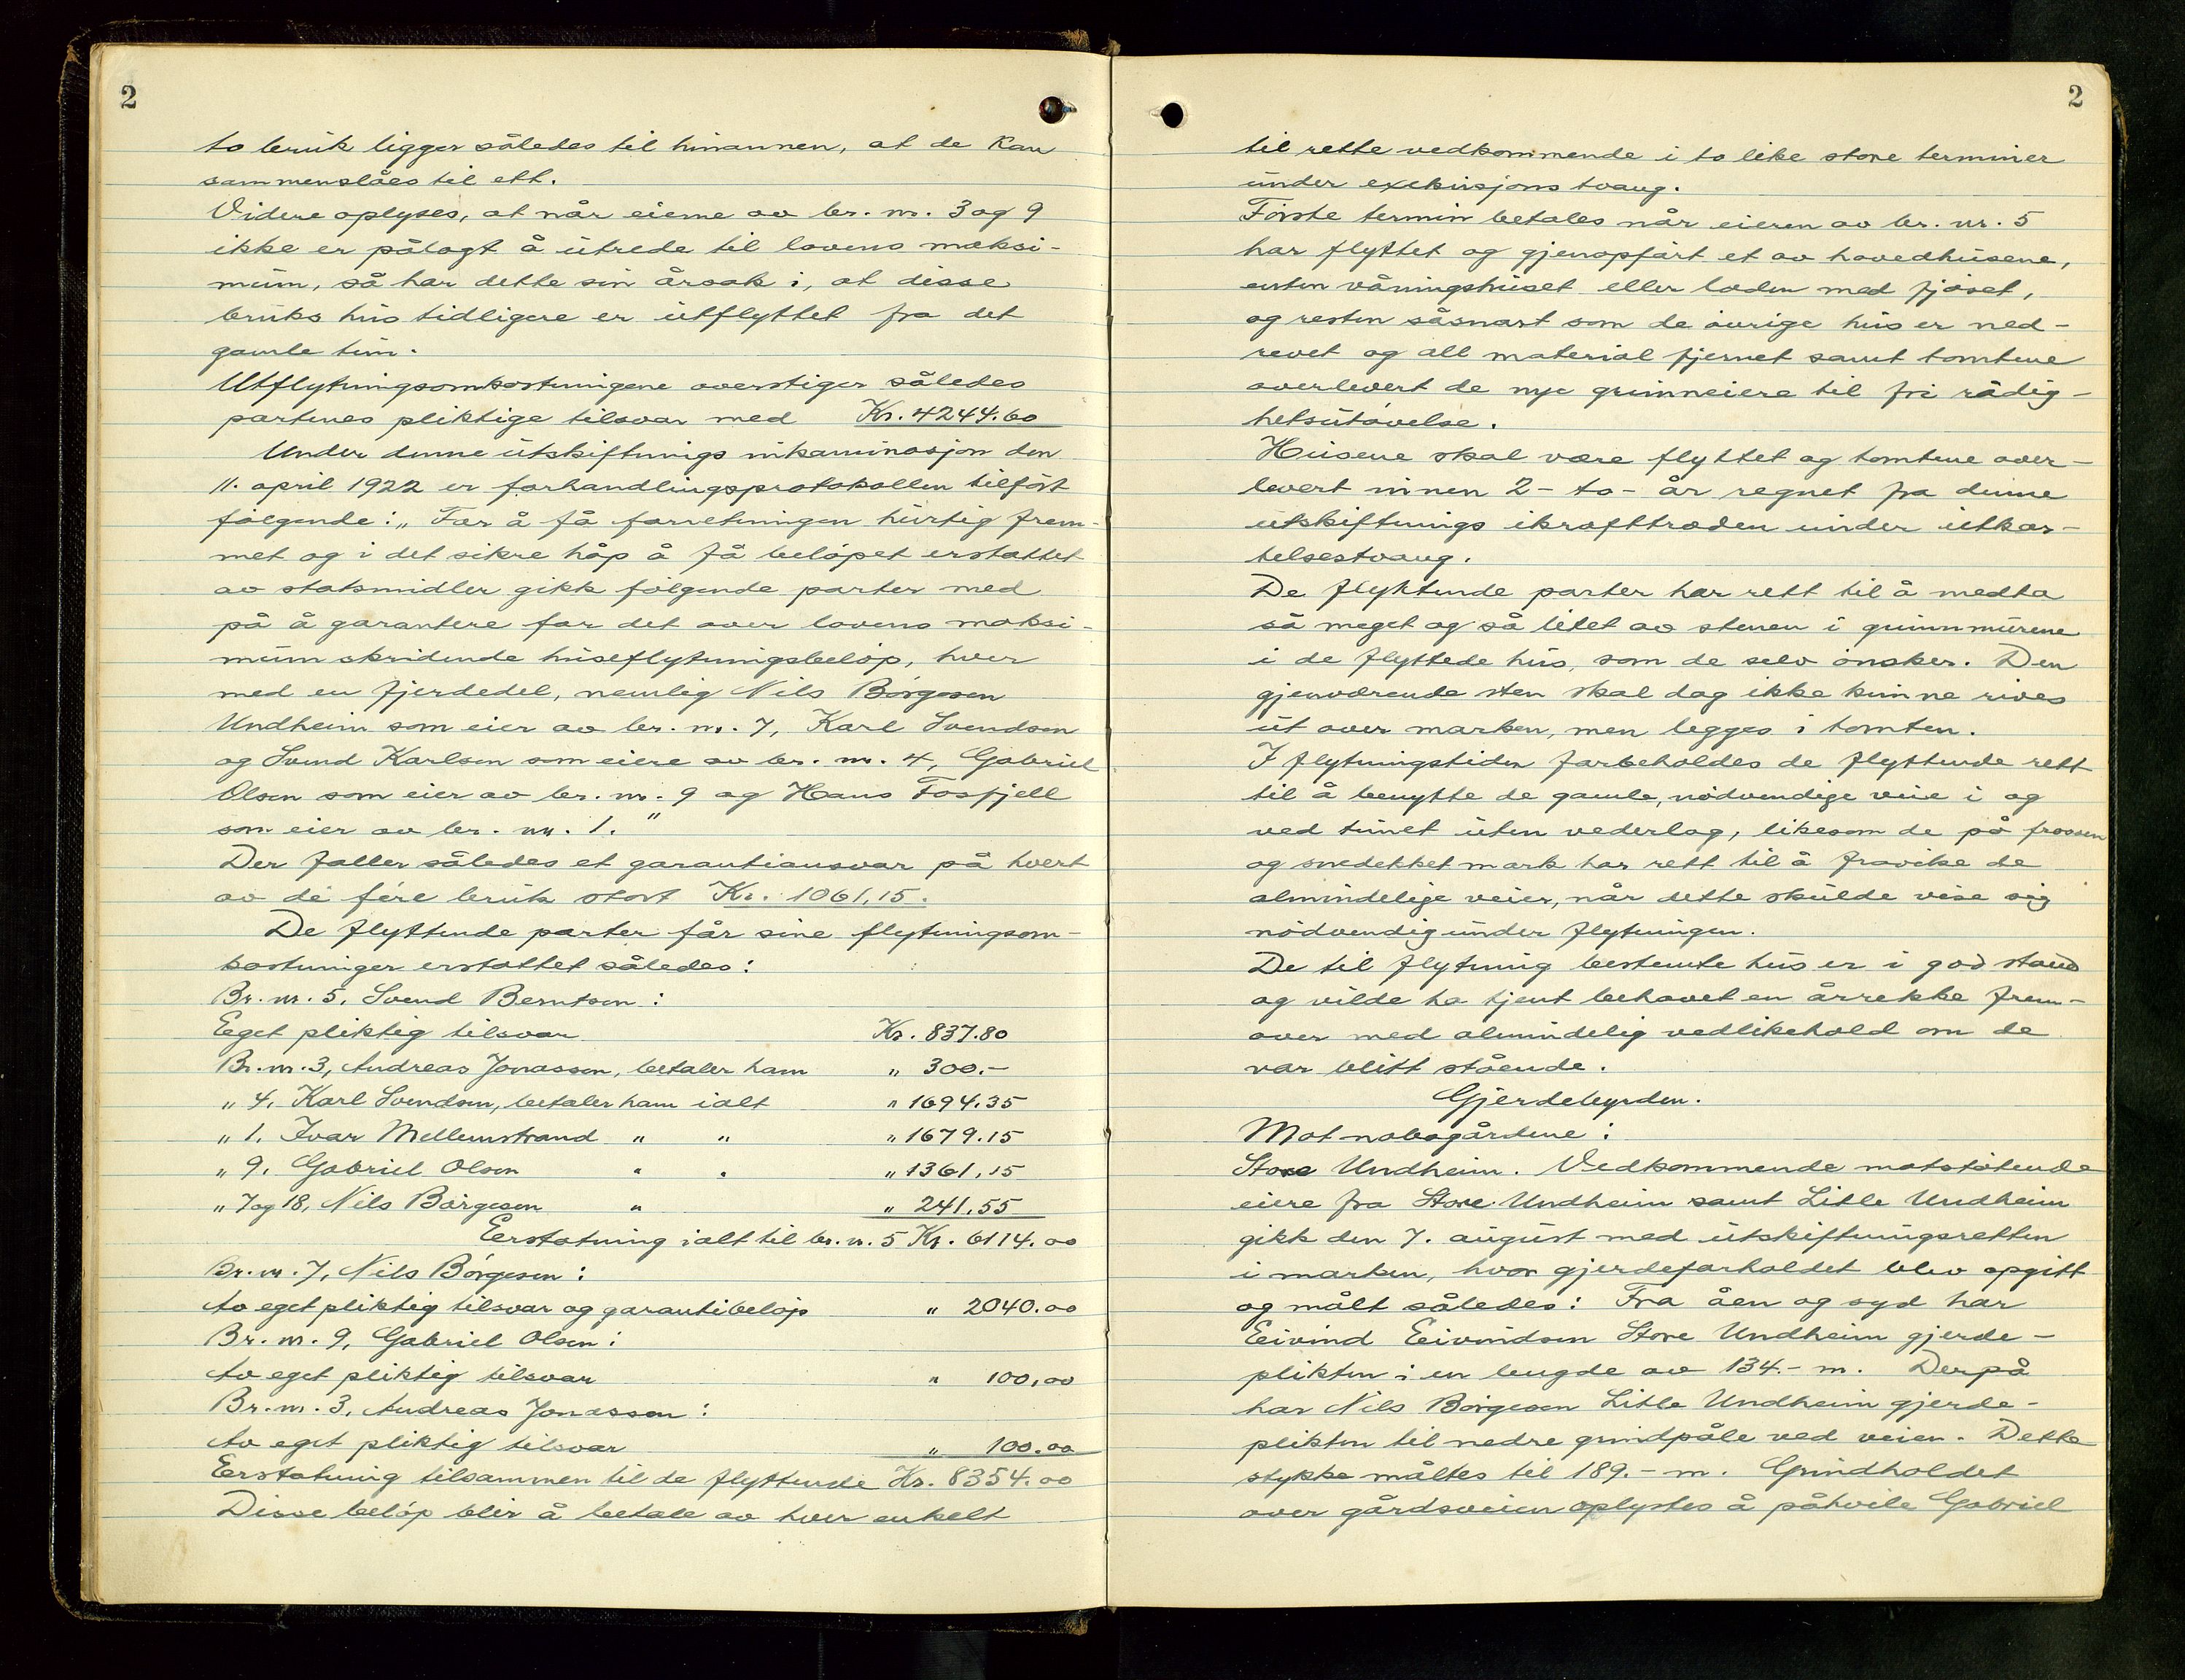 2
to bruk ligger således til hinannen, at de kan
sammenslåes til ett.
Videre oplyses, at når eierne av br. nr. 3 og 9
ikke er pålagt å utrede til lovens maksi-
mum, så har dette sin årsak i, at disse
bruks hus tidligere er utflyttet fra det
gamle tun.
Utflytningsomkostningene overstiger således
partenes pliktige tilsvar med Kr. 4244.60
Under denne utskiftnings inkaminasjon den
11. april 1922 er forhandlingsprotokollen tilført
følgende: „ For å få forretningen hurtig frem-
met og i det sikre håp å få beløpet erstattet
av statsmidler gikk følgende parter med
på å garantere for det over lovens maksi-
mum skridende huseflytningsbeløp, hver
med en fjerdedel, nemlig Nils Børgesen
Undheim som eier av br. nr. 7, Karl Svendsen
og Svend Karlsen som eiere av br. nr. 4, Gabriel
Olsen som eier av br. nr. 9 og Hans Fosfjell
som eier av br. nr. 1. "
Der faller således et garantiansvar på hvert
av de fire bruk stort Kr. 1061,15.
De flyttende parter får sine flytningsom-
kostninger erstattet således:
Br. nr. 5. Svend Berntsen:
Eget pliktig tilsvar Kr. 837.80
Br. nr. 3, Andreas Jonassen, betaler ham " 300.-
" 4. Karl Svendsen, betaler ham ialt " 1694.35
" 1. Ivar Mellemstrand " " " 1679.15
" 9. Gabriel Olsen " " " 1361,15
" 7 og 18, Nils Børgesen " " 241.55
Erstatning ialt til br. n. 5 Kr. 6114.00
Br. nr. 7, Nils Børgesen:
Av eget pliktig tilsvar og garantibeløp " 2040.00
Br. nr. 9, Gabriel Olsen:
Av eget pliktig tilsvar " 100,00
Br. nr. 3, Andreas Jonassen:
Av eget pliktig tilsvar " 100.00
Erstatning tilsammen til de flyttende Kr. 8354.00
Disse beløp blir å betale av hver enkelt
2
til rette vedkommende i to like store terminer
under exekusjons tvang.
Første termin betales når eieren av br. nr. 5
har flyttet og gjenopført et av hovedhusene,
enten våningshuset eller løden med fjøset,
og resten såsnart som de øvrige hus er ned-
revet og all material fjernet samt tomtene
overlevert de nye grunneiere til fri rådig-
hetsutøvelse.
Husene skal være flyttet og tomtene over-
levert innen 2- to- år regnet fra denne
utskiftnings ikrafttræden under utkas-
telsestvang.
De flyttende parter har rett til å medta
så meget og så litet av stenen i grunnmurene
i de flyttede hus, som de selv ønsker. Den
gjenværende sten skal dog ikke kunne rives
ut over marken, men legges i tomten.
I flytningstiden forbeholdes de flyttende rett
til å benytte de gamle, nødvendige veie i og
ved tunet uten vederlag, likesom de på frossen
og snedekket mark har rett til å fravike de
almindelige veier, når dette skulde vise sig
nødvendig under flytningen.
De til flytning bestemte hus er i god stand
og vilde ha tjent behovet en årrekke frem-
over med almindelig vedlikehold om de
var blitt stående.
Gjerdebyrden.
Mot nabogårdene:
Store Undheim. Vedkommende motstøtende
eiere fra Store Undheim samt Litle Undheim
gikk den 7. august med utskiftningsretten
i marken, hvor gjerdeforholdet blev opgitt
og målt således: Fra åen og syd har
Eivind Eivindsen Store Undheim gjerde-
plikten i en lengde av 134.- m. Derpå
har Nils Børgesen Litle Undheim gjerde-
plikten til nedre grindpåle ved veien. Dette
stykke måltes til 189.- m. Grindholdet
over gårdsveien oplystes å påhvile Gabriel